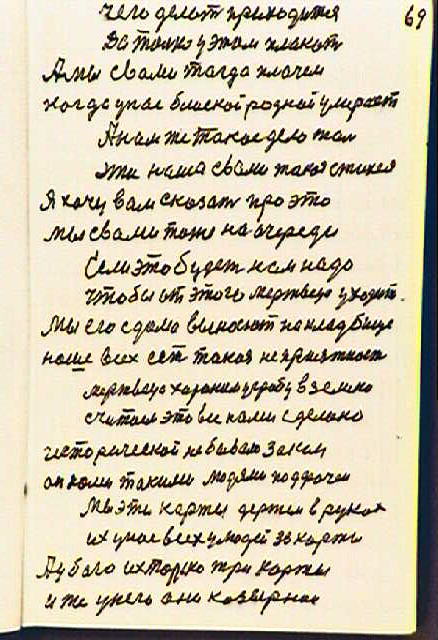 69
чего делат приходится
Вот только у этом плакат
А мы свами тагда плачем
когда унас блиской родной умирает
А нам же такое дело жал
эти наша свами такая стихея
Я хочу вам сказат про это
мы свами тоже на очереди
Если это будет нам надо
чтобы от этого мертвецо уходит.
Мы его сдома выносют на кладбище
наше всех ест такая неприятност
мертвецо хароним угробу в землю
считаем это все нами сделано
исторической небывало закон
он нами такими людями подрачен
Мы эти карты держем в руках
их унас всех улюдей 33 карты
А у бога их только три карты
и те унего они козырные